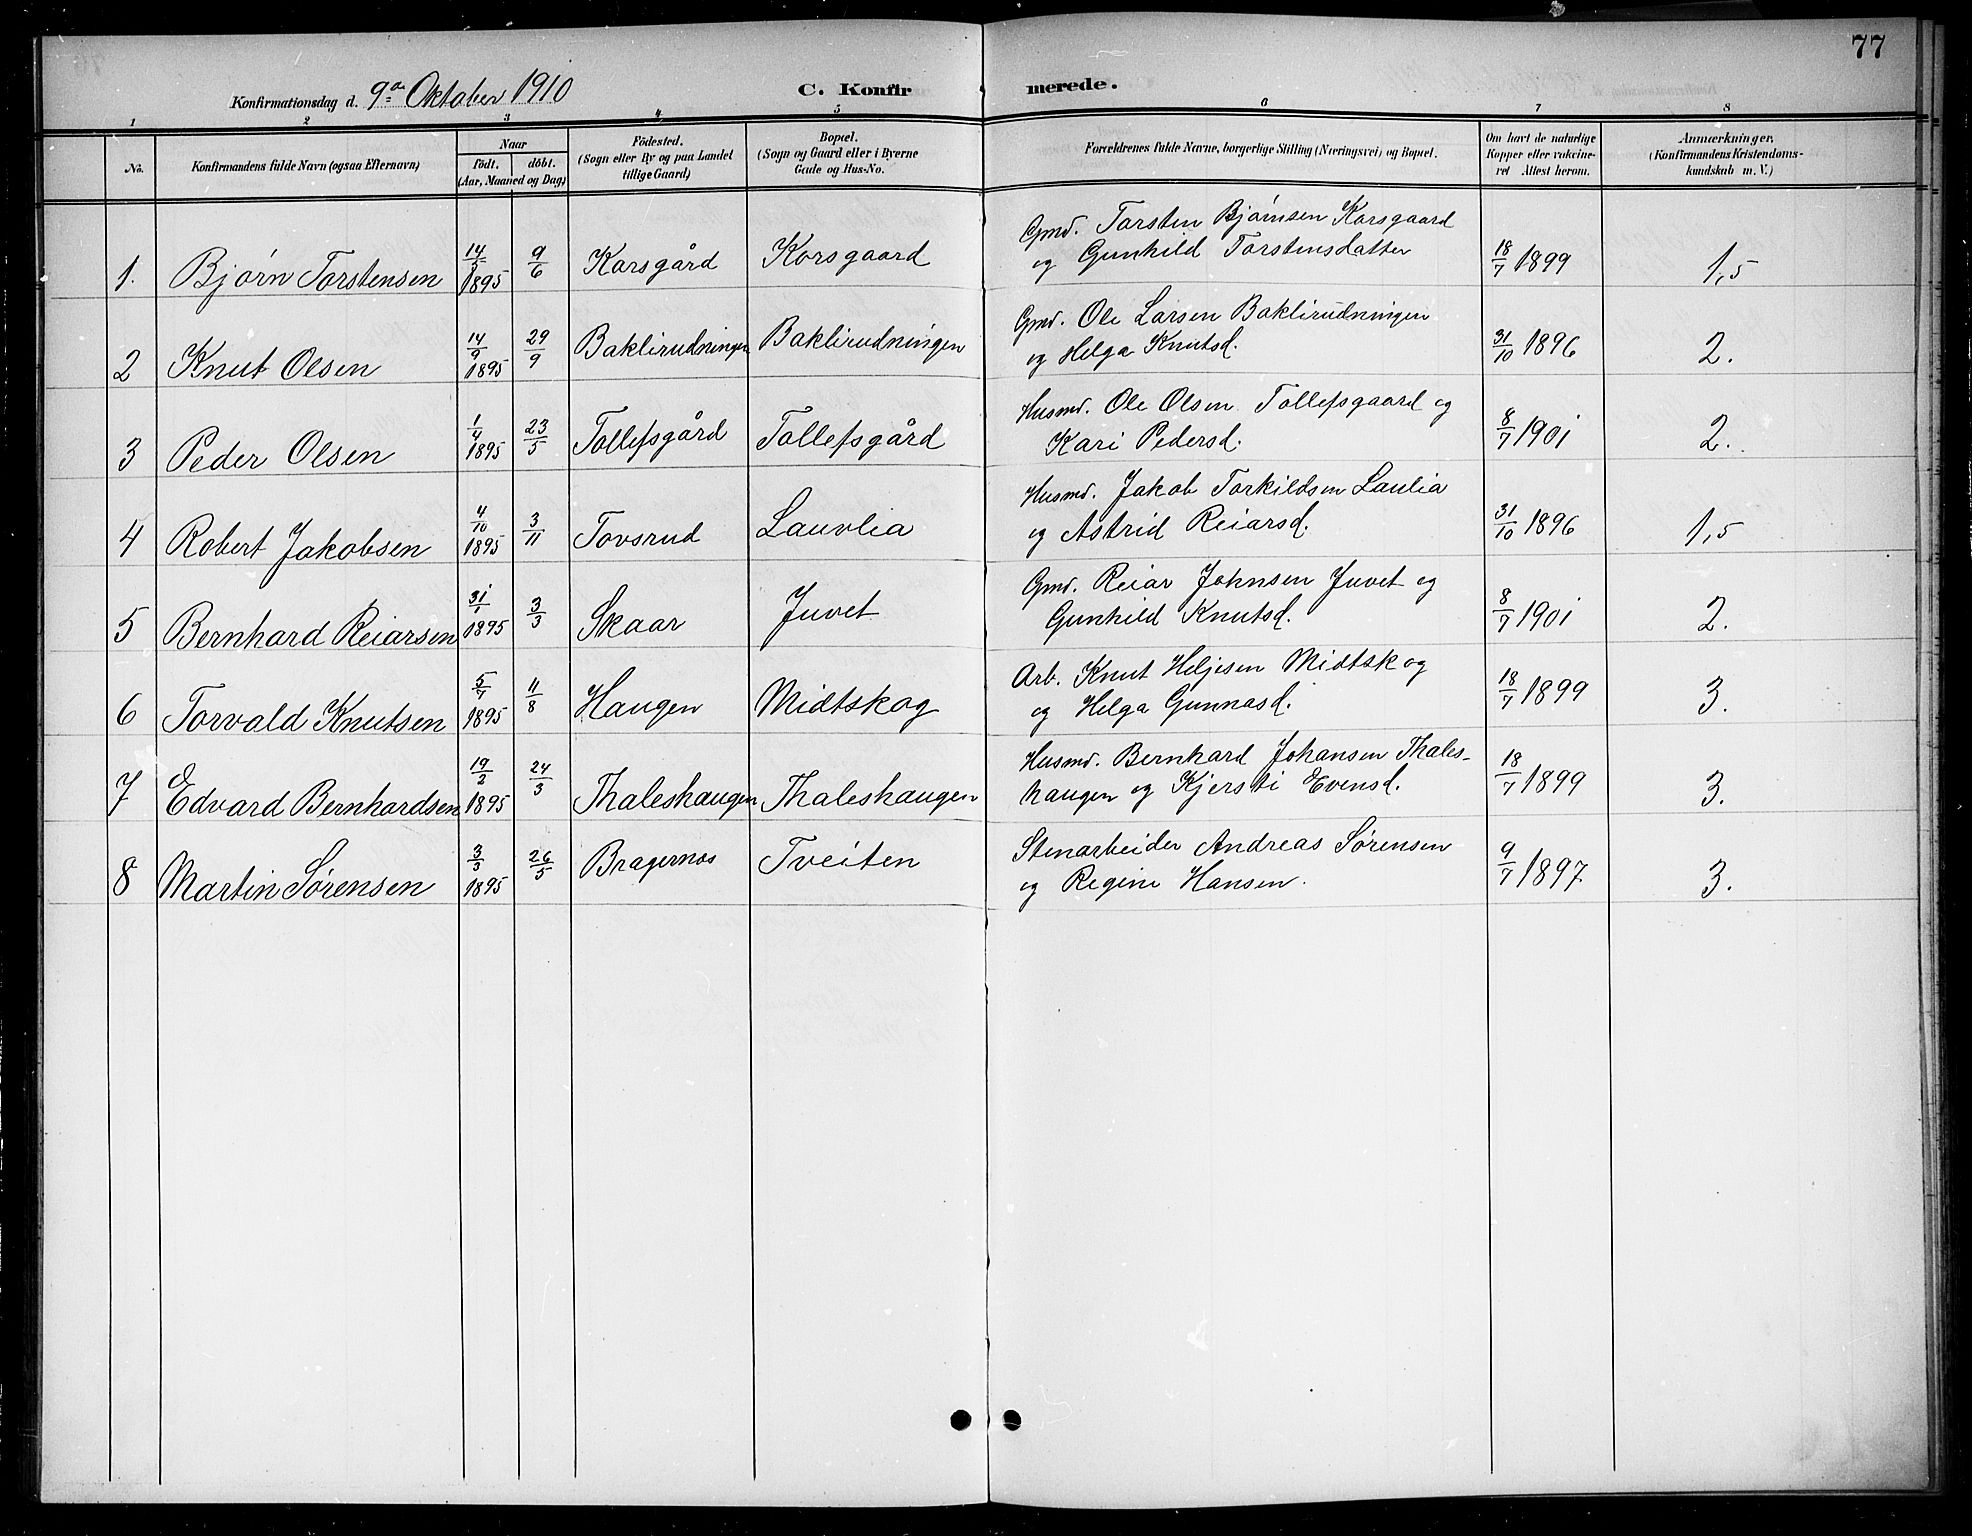 77
Konfirmationsdag d. 9de Oktober 1910
C. Konfirmerede.
1 2 3 4 5 6 7 8
No.
Konfirmandens fulde Navn (ogsaa Efternavn)
Naar
født. døbt.
(Aar, Maaned og Dag)
Fødested.
(Sogn eller By og paa Landet
tillige Gaard)
Bopæl.
(Sogn og Gaard eller i Byerne
Gade og Hus-No.
Forældrenes fulde Navne, borgerlige Stilling (Næringsvei) og Bopæl.
Om havt de naturlige
Kopper eller vakcine-
ret Attest herom.
Anmærkninger,
(Konfirmandens Kristendoms-
kundskab m. V.)
1. Bjørn Torstensen 14/5 1895 9/6 Korsgård Korsgaard Gmd. Torsten Bjørnsen Korsgaard
og Gunhild Torstensdatter 18/7 1899 1,5
2 Knut Olsen 14/9 1895 29/9 Baklirudningen Baklirudningen Gmd. Ole Larsen Baklirudningen
og Helga Knutsd. 31/10 1896 2.
3 Peder Olsen 1/4 1895 23/5 Tollefsgård Tollefsgård Husmd. Ole Olsen Tollefsgaard og
Kari Pedersd. 8/7 1901 2.
4 Robert Jakobsen 4/10 1895 3/11 Tovsrud Lauvlia Husmd. Jakob Torkildsen Laulia
og Astrid Reiarsd. 31/10 1896 1,5
5 Bernhard Reiarsen 31/1 1895 3/3 Skaar Juvet Gmd. Reiar Johnsen Juvet og
Gunhild Knutsd. 8/7 1901 2.
6 Torvald Knutsen 5/7 1895 11/8 Haugen Midtskog Arb. Knut Heljesen Midtskog
og Helga Gunnasd. 18/7 1899 3.
7 Edvard Bernhardsen 19/2 1895 24/3 Thaleshaugen Thaleshaugen Husmd. Bernhard Johansen Thales-
haugen og Kjersti Evensd. 18/7 1899 3.
8 Martin Sørensen 3/3 1895 26/5 Bragernæs Tveiten Stenarbeider Andreas Sørensen
og Regine Hansen. 9/7 1897. 3.